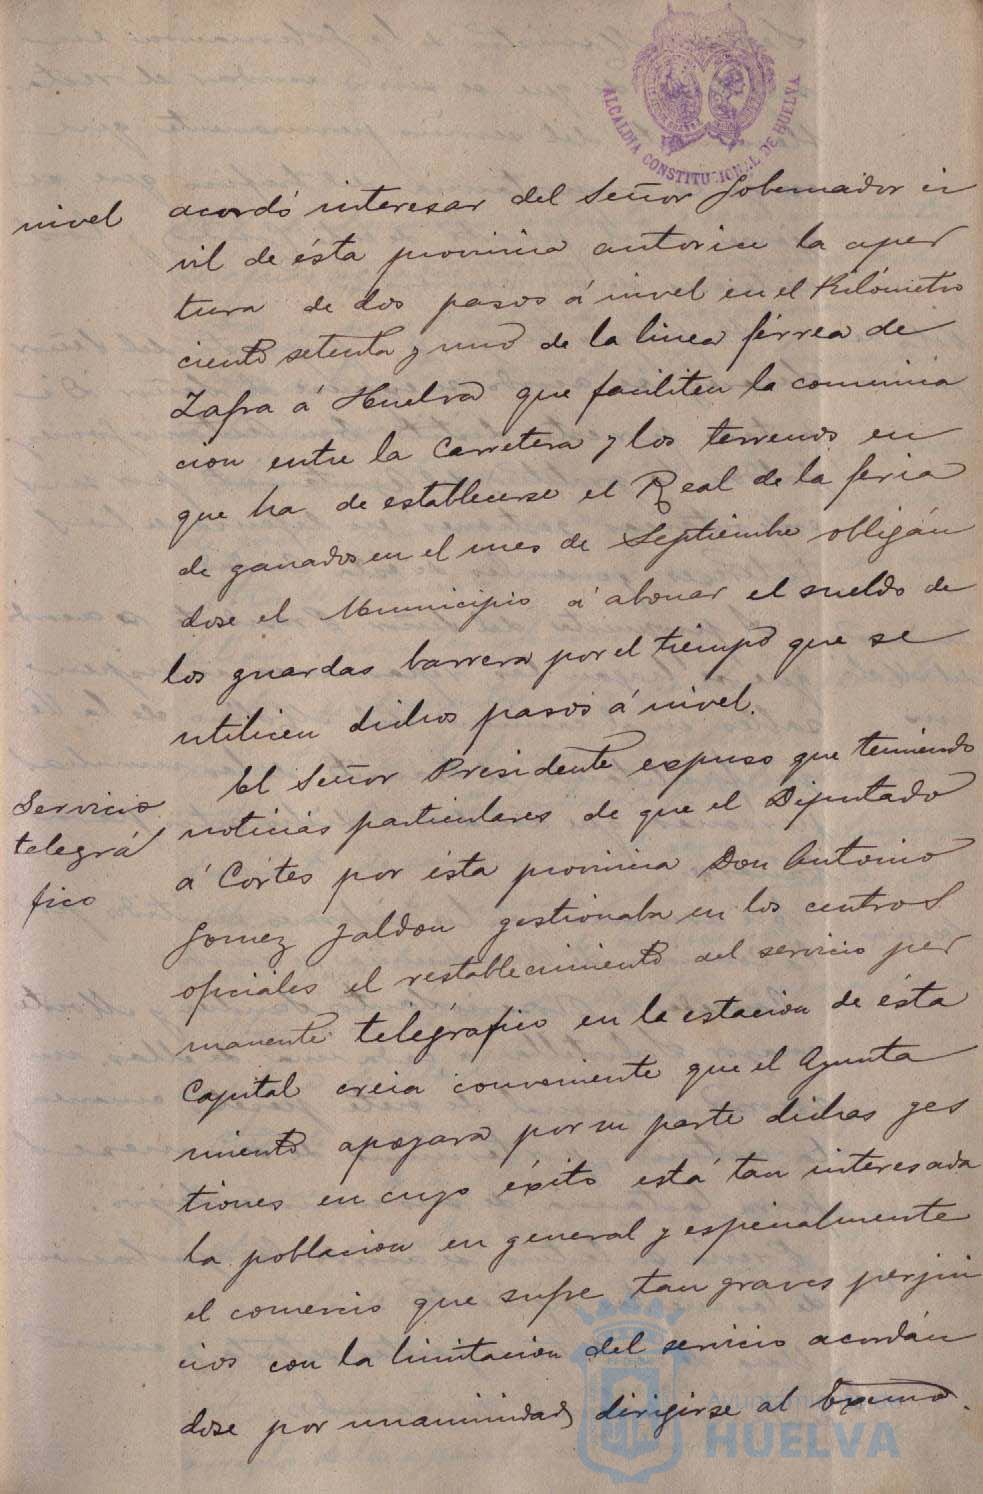 ALCALDIA CONSTITUCIONAL DE HUELVA
nivel
acordó interesar del Señor Gobernador ci
vil de ésta provincia autorice la aper
tura de dos pasos á nivel en el Kilómetro
ciento setenta y uno de la linea férrea de
Zafra á Huelva que faciliten la comunica
cion entre la Carretera y los terrenos en
que ha de establecerse el Real de la feria
de ganados en el mes de Septiembre obligán
dose el Municipio á abonar el sueldo de
los guardas barrera por el tiempo que se
utilicen dichos pasos á nivel.
Servicio
telegrá
fico
El Señor Presidente expuso que teniendo
noticias particulares de que el Diputado
á Cortes por ésta provincia Don Antonio
Gomez Jaldon gestionaba en los centros
oficiales el restablecimiento del servicio per
manente telégrafico en la estacion de ésta
Capital creia conveniente que el Ayunta
miento apoyara por su parte dichas ges
tiones en cuyo éxito está tan interesada
la poblacion en general y especialmente
el comercio que sufre tan graves perjui
cios con la limitacion del servicio acordán
dose por unanimidad dirigirse al Excmo.
Ayuntamiento
HUELVA